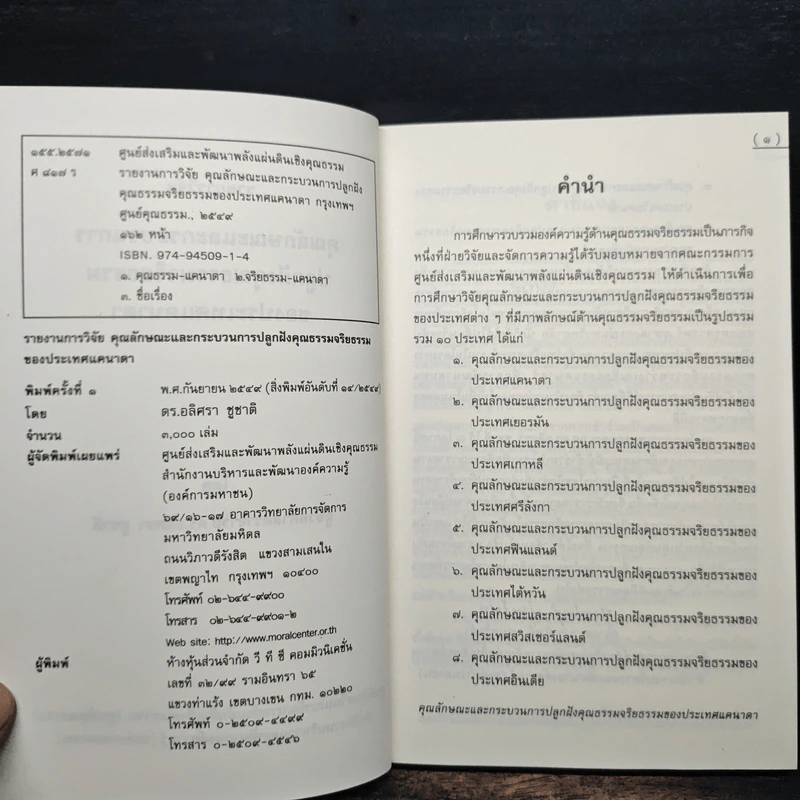 ๑๕๕.๒๕๗๑ ศูนย์ส่งเสริมและพัฒนาพลังแผ่นดินเชิงคุณธรรม
ศ ๘๑๗ ร รายงานการวิจัย คุณลักษณะและกระบวนการปลูกฝัง
คุณธรรมจริยธรรมของประเทศแคนาดา กรุงเทพฯ
ศูนย์คุณธรรม., ๒๕๔๙
๑๖๒ หน้า
ISBN. 974-94509-1-4
๑. คุณธรรม-แคนาดา ๒.จริยธรรม-แคนาดา
๓. ชื่อเรื่อง
รายงานการวิจัย คุณลักษณะและกระบวนการปลูกฝังคุณธรรมจริยธรรม
ของประเทศแคนาดา
พิมพ์ครั้งที่ ๑ พ.ศ.กันยายน ๒๕๔๙ (สิ่งพิมพ์อันดับที่ ๑๔/๒๕๔๙)
โดย ดร.อลิศรา ชูชาติ
จำนวน ๓,๐๐๐ เล่ม
ผู้จัดพิมพ์เผยแพร่ ศูนย์ส่งเสริมและพัฒนาพลังแผ่นดินเชิงคุณธรรม
สำนักงานบริหารและพัฒนาองค์ความรู้
(องค์การมหาชน)
๖๙/๑๖-๑๗ อาคารวิทยาลัยการจัดการ
มหาวิทยาลัยมหิดล
ถนนวิภาวดีรังสิต แขวงสามเสนใน
เขตพญาไท กรุงเทพฯ ๑๐๔๐๐
โทรศัพท์ ๐๒-๖๔๔-๙๙๐๐
โทรสาร ๐๒-๖๔๔-๙๙๐๑-๒
Web site: http://www.moralcenter.or.th
ผู้พิมพ์ ห้างหุ้นส่วนจำกัด วี ที ซี คอมมิวนิเคชั่น
เลขที่ ๓๒/๙๙ รามอินทรา ๖๕
แขวงท่าแร้ง เขตบางเขน กทม. ๑๐๒๒๐
โทรศัพท์ ๐-๒๕๐๙-๔๔๙๙
โทรสาร ๐-๒๕๐๙-๔๕๔๖
(๑)
คำนำ
การศึกษารวบรวมองค์ความรู้ด้านคุณธรรมจริยธรรมเป็นภารกิจ
หนึ่งที่ฝ่ายวิจัยและจัดการความรู้ได้รับมอบหมายจากคณะกรรมการ
ศูนย์ส่งเสริมและพัฒนาพลังแผ่นดินเชิงคุณธรรม ให้ดำเนินการเพื่อ
การศึกษาวิจัยคุณลักษณะและกระบวนการปลูกฝังคุณธรรมจริยธรรม
ของประเทศต่าง ๆ ที่มีภาพลักษณ์ด้านคุณธรรมจริยธรรมเป็นรูปธรรม
รวม ๑๐ ประเทศ ได้แก่
๑. คุณลักษณะและกระบวนการปลูกฝังคุณธรรมจริยธรรมของ
ประเทศแคนาดา
๒. คุณลักษณะและกระบวนการปลูกฝังคุณธรรมจริยธรรมของ
ประเทศเยอรมัน
๓. คุณลักษณะและกระบวนการปลูกฝังคุณธรรมจริยธรรมของ
ประเทศเกาหลี
๔. คุณลักษณะและกระบวนการปลูกฝังคุณธรรมจริยธรรมของ
ประเทศศรีลังกา
๕. คุณลักษณะและกระบวนการปลูกฝังคุณธรรมจริยธรรมของ
ประเทศฟินแลนด์
๖. คุณลักษณะและกระบวนการปลูกฝังคุณธรรมจริยธรรมของ
ประเทศไต้หวัน
๗. คุณลักษณะและกระบวนการปลูกฝังคุณธรรมจริยธรรมของ
ประเทศสวิสเซอร์แลนด์
๘. คุณลักษณะและกระบวนการปลูกฝังคุณธรรมจริยธรรมของ
ประเทศอินเดีย
คุณลักษณะและกระบวนการปลูกฝังคุณธรรมจริยธรรมของประเทศแคนาดา